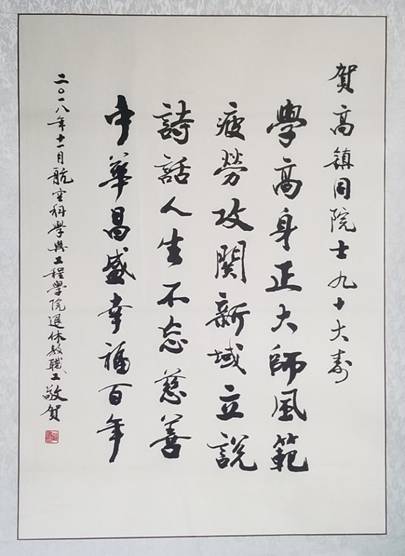 賀高鎮同院士九十大壽
學高身正大師風範
疲勞攻關新域立說
詩話人生不忘慈善
中華昌盛幸福百年
二〇一八年十一月航空科學與工程學院退休教職工敬賀